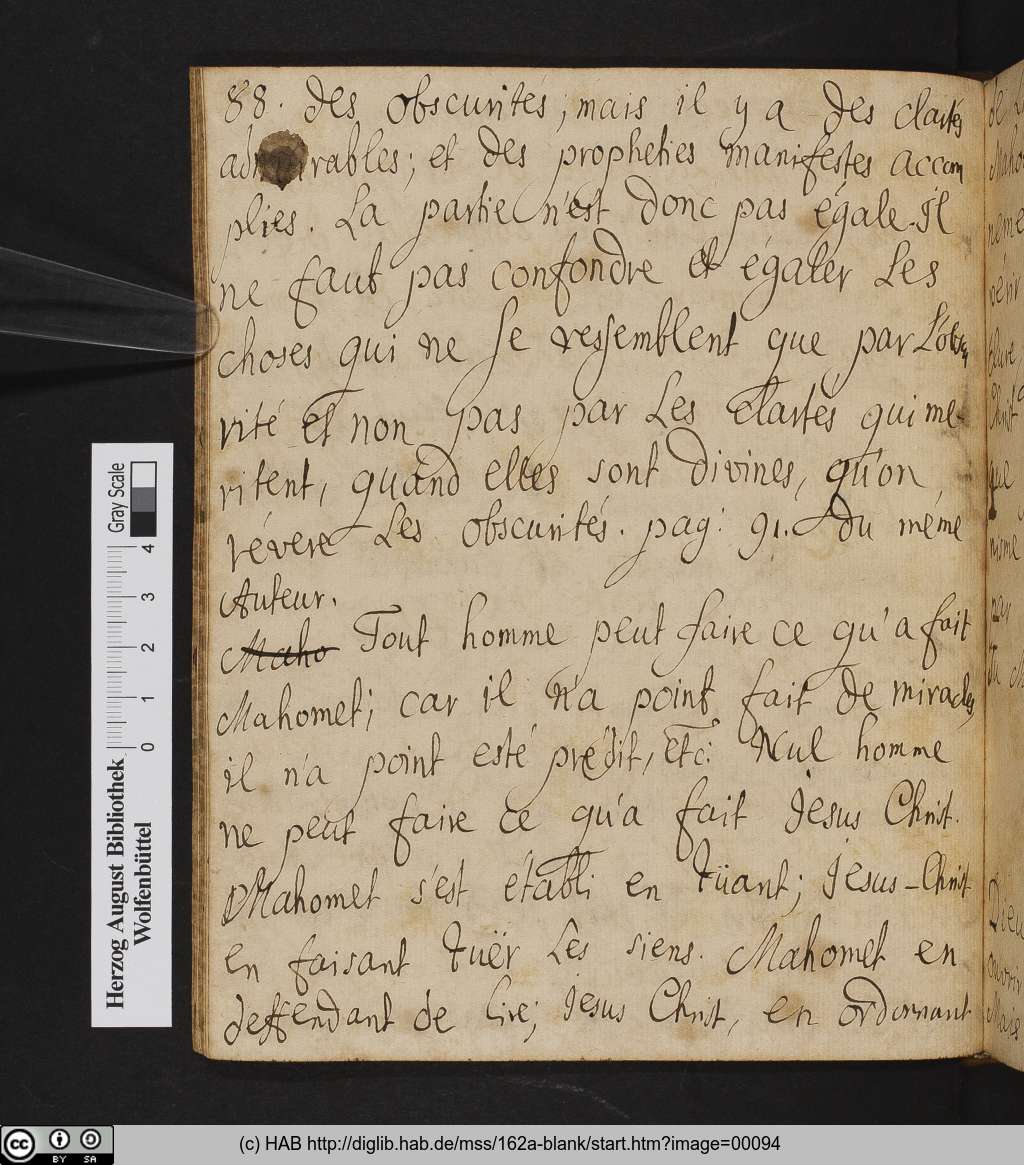 88. des obscurités; mais il y a des clartés
admirables; et des propheties manifestes accom
plies. La partie n'est donc pas égale. Il
ne faut pas confondre et égaler Les
choses qui ne se ressemblent que par L'obscu
rité et non pas par Les clartés qui me-
ritent, quand elles sont divines, qu'on
révere Les obscurités. pag: 91. du méme
Auteur.
Maho Tout homme peut faire ce qu'a fait
Mahomet; car il n'a point fait de miracles,
il n'a point esté prédit, etc: Nul homme
ne peut faire ce qu'a fait Jesus Christ.
Mahomet s'est établi en tüant; Jesus-Christ
en faisant tuër Les siens. Mahomet en
deffendant de lire; Jesus Christ, en ordonnant
Gray Scale
4
3
2
1
0
Herzog August Bibliothek
Wolfenbüttel
cc BY SA
(c) HAB http://diglib.hab.de/mss/162a-blank/start.htm?image=00094